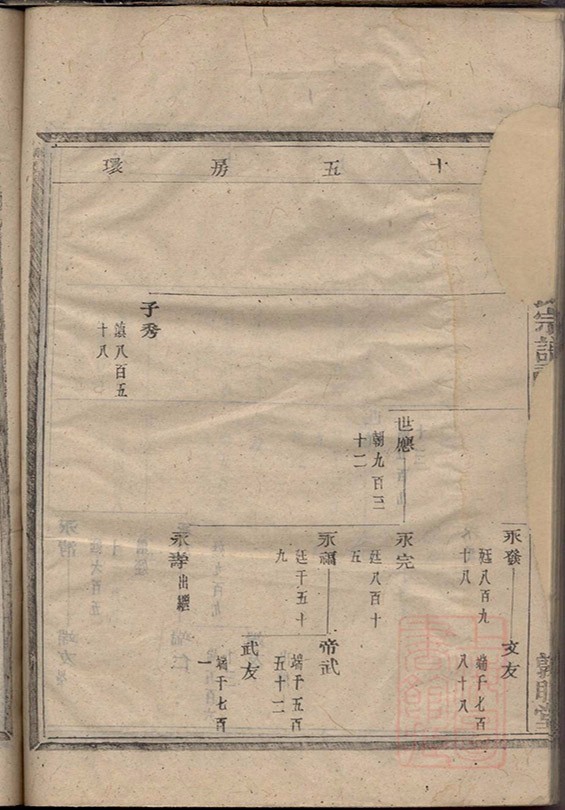 十五房環
宗譜
敦睦堂
子秀
滇八百五
十八
世應
朝九百三
十二
永發
廷八百九
十八
永完
廷八百十
五
永福
廷千五十
九
永壽出繼
文友
端千七百
八十八
帝武
端千五百
五十二
武友
端千七百
一